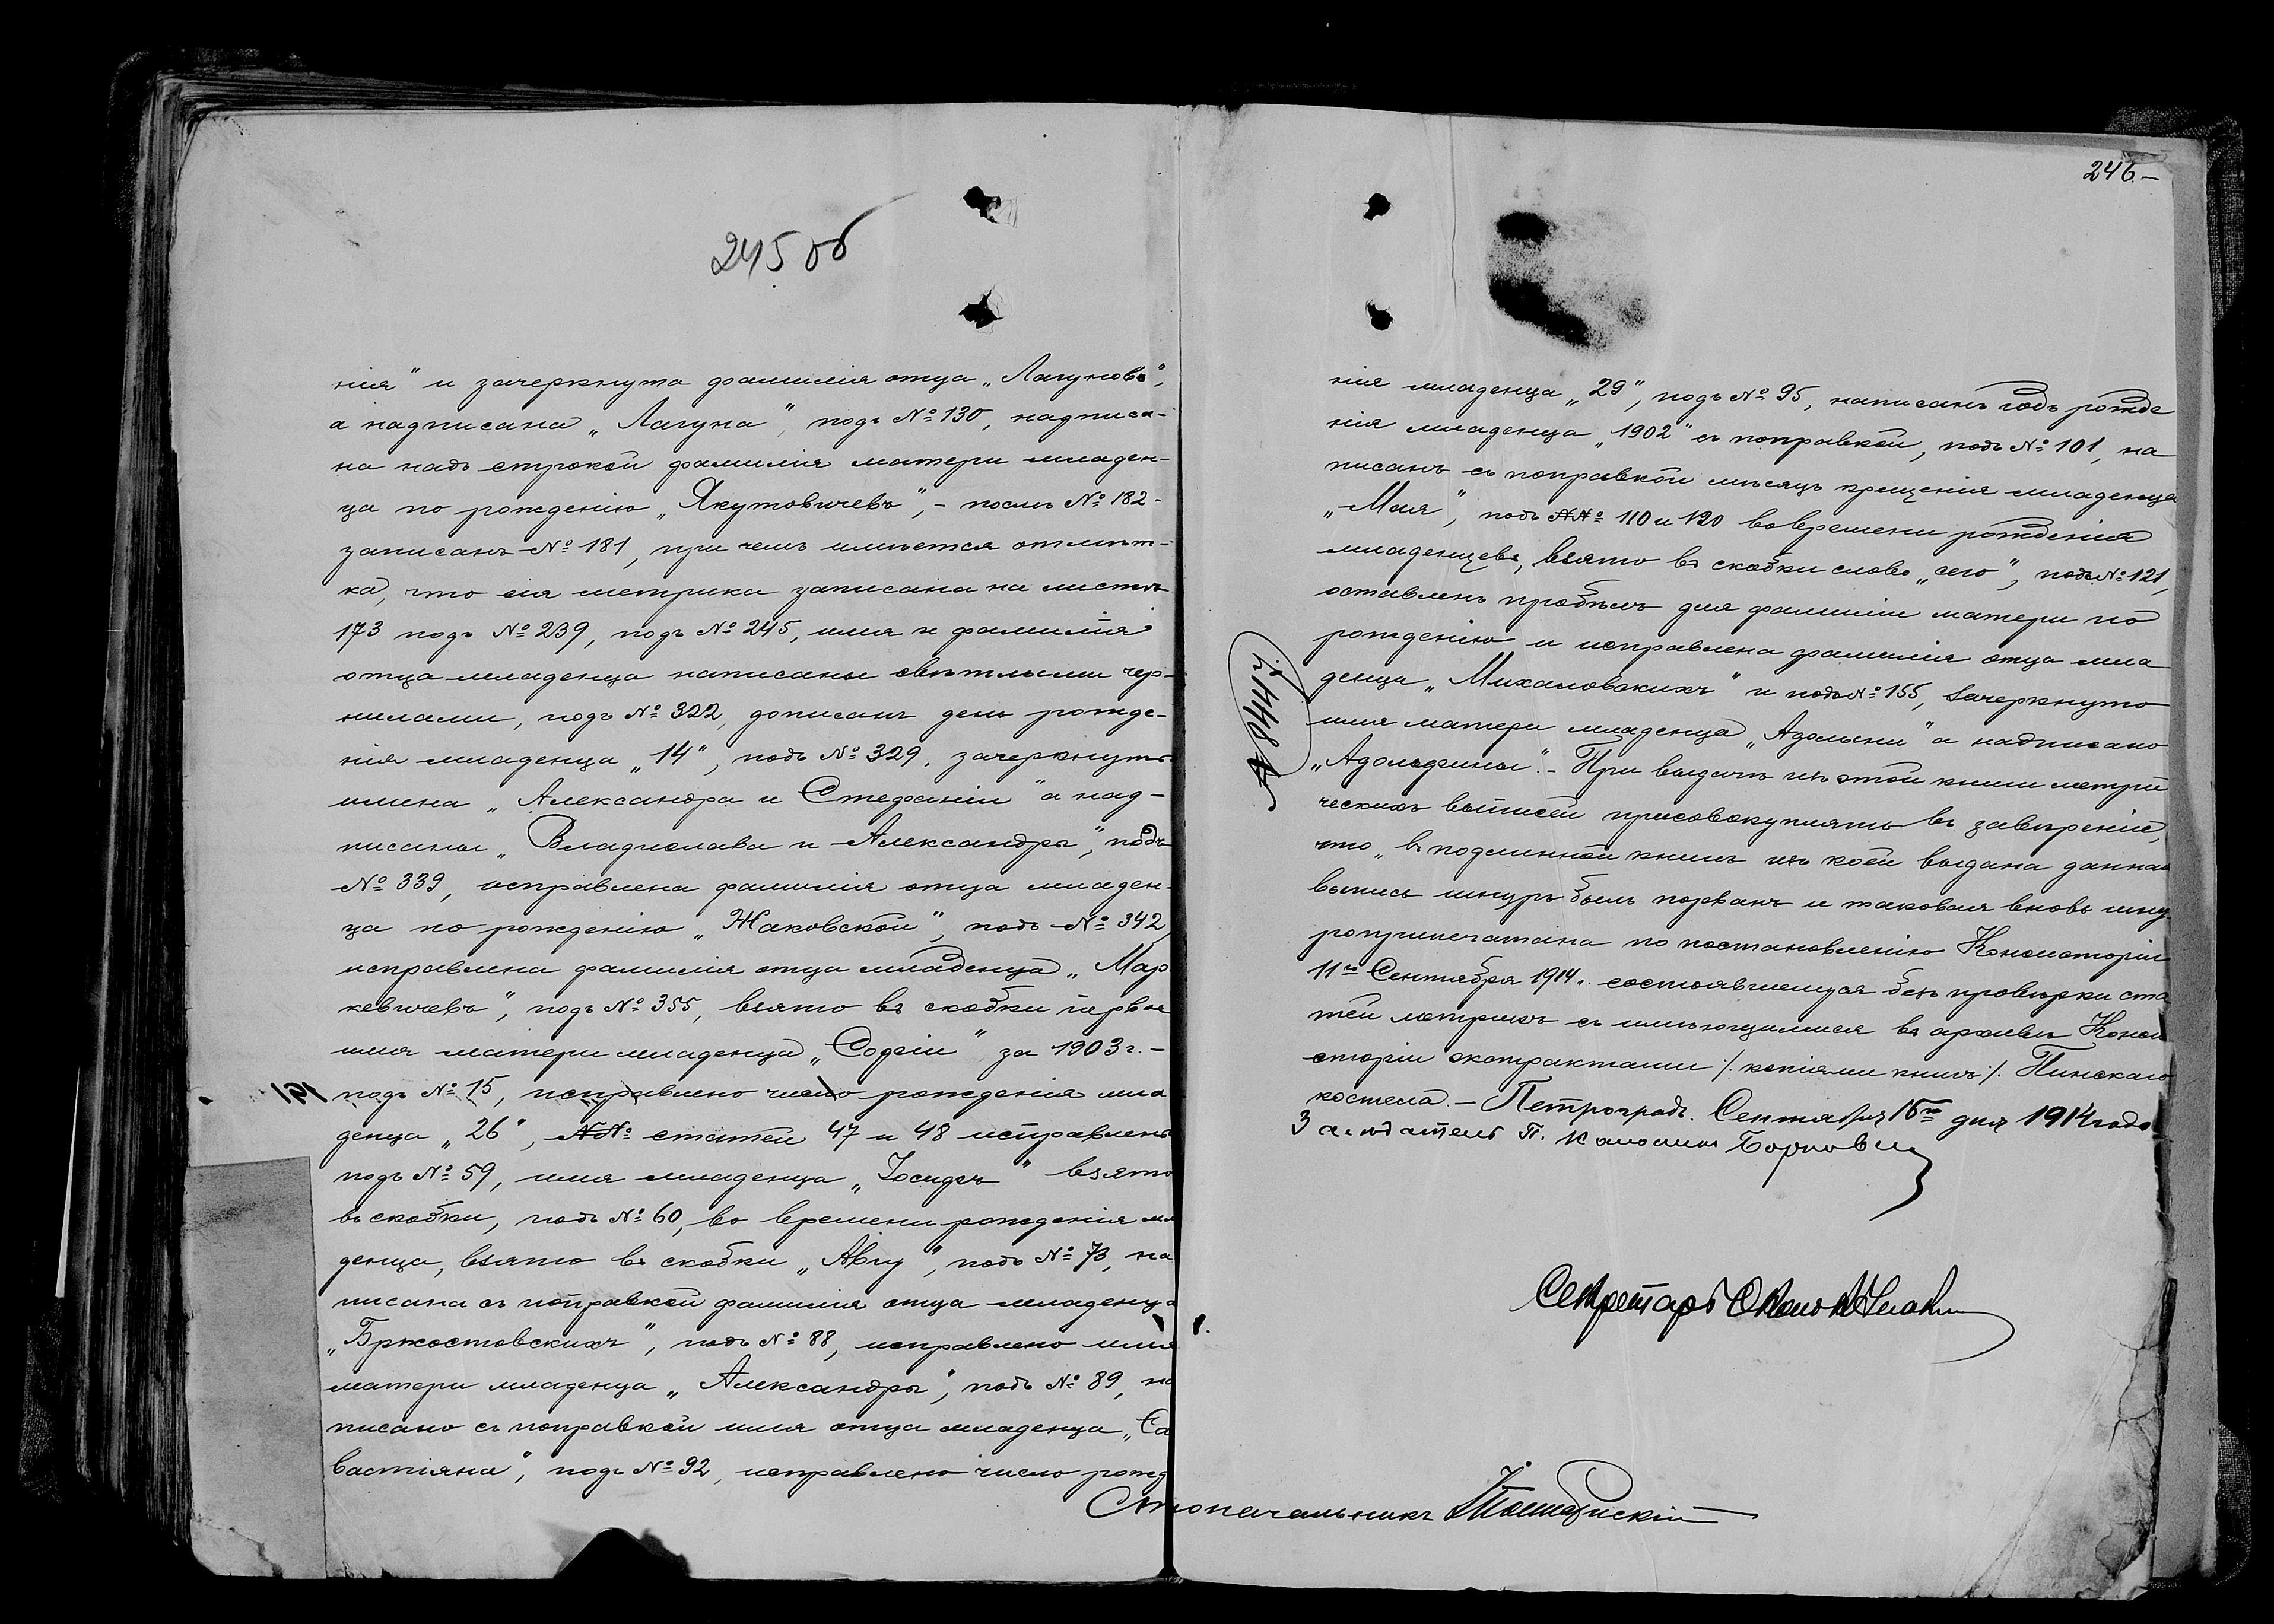 245 об
нія" и зачеркнута фамилія отца „Лагуновъ",
а надписана „Лагуна", подъ № 130, надписа-
на надъ строкой фамилія матери младен-
ца по рожденію „Якутовичевъ", - послѣ № 182 -
записанъ № 181, при чемъ имѣется отмѣт-
ка, что сія метрика записана на листѣ
173 подъ № 239, подъ № 245, имя и фамилія
отца младенца написаны свѣтлыми чер-
нилами, подъ № 322, дописанъ день рожде-
нія младенца „14", подъ № 329, зачеркнуты
имена „Александра и Стефаніи" а над-
писаны „Владислава и Александры", подъ
№ 339, исправлена фамилія отца младен-
ца по рожденію „Жаковской", подъ № 342,
исправлена фамилія отца младенца „Мар
кевичевъ", подъ № 355, взято въ скобки первое
имя матери младенца „Софіи" за 1903 г. -
191 подъ № 15, исправлено число рожденія мла
денца „26", №№ статей 47 и 48 исправлены
подъ № 59, имя младенца „Іосифъ" взято
въ скобки, подъ № 60, во времени рожденія мла
денца, взято въ скобки „Авгу", подъ № 73, на
писана съ поправкой фамилія отца младенца
„Бржостовскихъ", подъ № 88, исправлено имя
матери младенца „Александры", подъ № 89, на
писано съ поправкой имя отца младенца „Са
вастіяна", подъ № 92, исправлено число рожд
246.-
нія младенца „29", подъ № 95, написанъ годъ рожде
нія младенца „1902" съ поправкой, подъ № 101, на
писанъ съ поправкой мѣсяцъ крещенія младенца
„Мая", подъ №№ 110 и 120 во времени рожденія
младенцевъ, взято въ скобки слово „сего", подъ № 121,
оставленъ пробѣлъ для фамиліи матери по
рожденію и исправлена фамилія отца мла
денца „Михаловскихъ" и подъ № 155, зачеркнуто
имя матери младенца „Адольфи" а надписано
„Адольфины". - При выдачѣ изъ этой книги метри
ческихъ выписей присовокуплять въ завѣреніи,
что „въ подлинной книгѣ изъ коей выдана данная
выпись шнуръ былъ порванъ и таковая вновь шну
роприпечатана по постановленію Консисторіи
11го Сентября 1914 г. состоявшемуся безъ провѣрки ста
тей метрикъ съ имѣющимися въ архивѣ Конси
сторіи экстрактами /. копіями книгъ ./ Пинскаго
костела. - Петроградъ. Сентября 15го дня 1914 года
Засѣдатель П. Каноникъ
Секретарь
Столоначальникъ